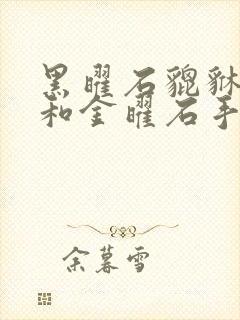 黑曜石貔貅
和金曜石手
余暮雪